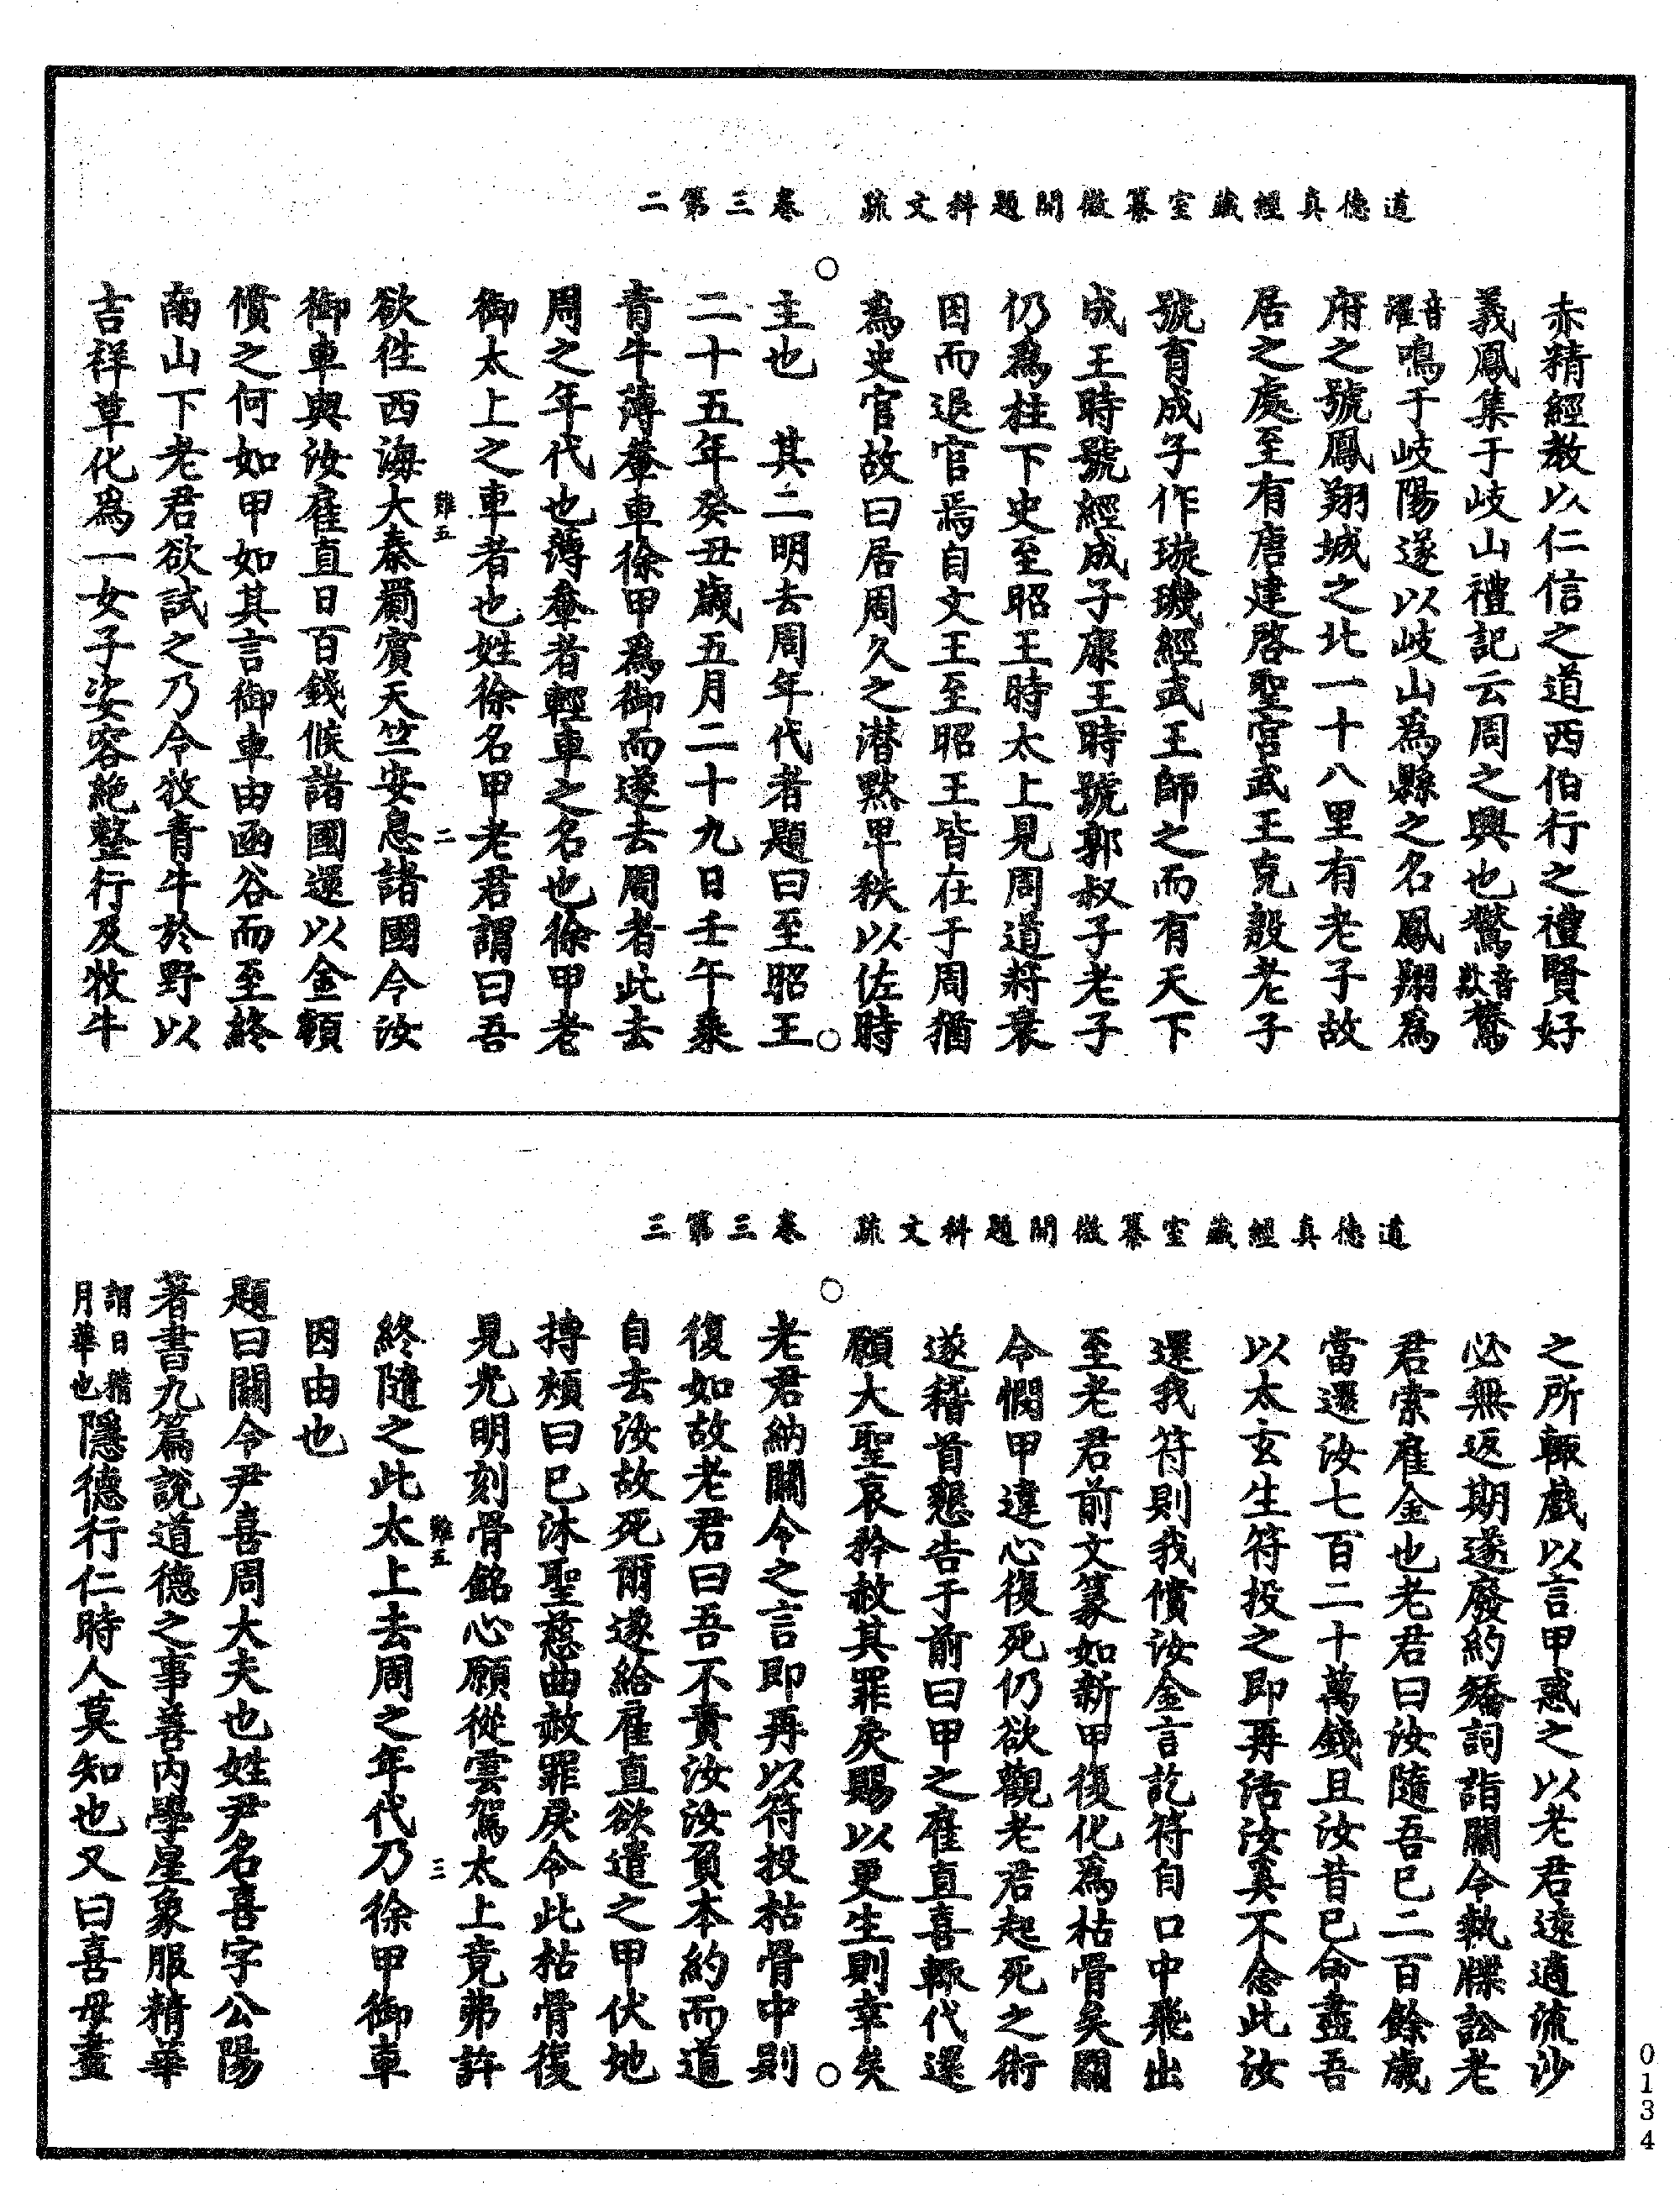 道德真經藏室纂微開題科文疏　卷三第二
赤精經教以仁信之道西伯行之禮賢好
義鳳集于岐山禮記云周之興也鸑音嶽鷟
音濯鳴于岐陽遂以岐山為縣之名鳳翔為
府之號鳳翔城之北一十八里有老子故
居之處至有唐建啓聖宮武王克殷老子
號育成子作璇璣經武王師之而有天下
成王時號經成子康王時號郭叔子老子
仍為柱下史至昭王時太上見周道將衰
因而退官焉自文王至昭王皆在于周猶
為史官故曰居周久之潛默卑秩以佐時
主也　其二明去周年代者題曰至昭王
二十五年癸丑歲五月二十九日壬午乘
青牛薄輂車徐甲為御而遂去周者此去
周之年代也薄輂者輕車之名也徐甲老
御太上之車者也姓徐名甲老君謂曰吾
難五　二
欲往西海大秦罽賓天竺安息諸國令汝
御車與汝雇直日百錢候諸國還以金頓
償之何如甲如其言御車由函谷而至終
南山下老君欲試之乃令牧青牛於野以
吉祥草化為一女子姿容絕整行及牧牛
道德真經藏室纂微開題科文疏　卷三第三
之所輙戲以言甲惑之以老君遠適流沙
必無返期遂廢約矯詞詣關令執牒訟老
君索雇金也老君曰汝隨吾已二百餘歲
當還汝七百二十萬錢且汝昔已命盡吾
以太玄生符投之即再活汝奚不念此汝
還我符則我償汝金言訖符自口中飛出
至老君前文篆如新甲復化為枯骨矣關
令憫甲違心復死仍欲觀老君起死之術
遂稽首懇告于前曰甲之雇直喜輙代還
願大聖哀矜赦其罪戾賜以更生則幸矣
老君納關令之言即再以符投枯骨中則
復如故老君曰吾不責汝汝負本約而道
自去汝故死爾遂給雇直欲遣之甲伏地
搏頰曰已沐聖慈曲赦罪戾令此枯骨復
見光明刻骨銘心願從雲駕太上竟弗許
難五　三
終隨之此太上去周之年代乃徐甲御車
因由也
題曰關令尹喜周大夫也姓尹名喜字公陽
著書九篇說道德之事善內學星象服精華
謂日精月華也隱德行仁時人莫知也又曰喜母晝
0134